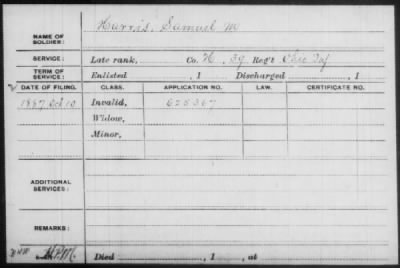 Harris, Samuel M.
NAME OF SOLDIER:
SERVICE: Late rank, Co. H, 39 Reg't Ohio Inf
TERM OF SERVICE: Enlisted , 1 Discharged , 1
DATE OF FILING. CLASS. APPLICATION NO. LAW. CERTIFICATE NO.
1887 Oct 10 Invalid, 625367
Widow,
Minor,
ADDITIONAL SERVICES:
REMARKS:
Died , 1 , at